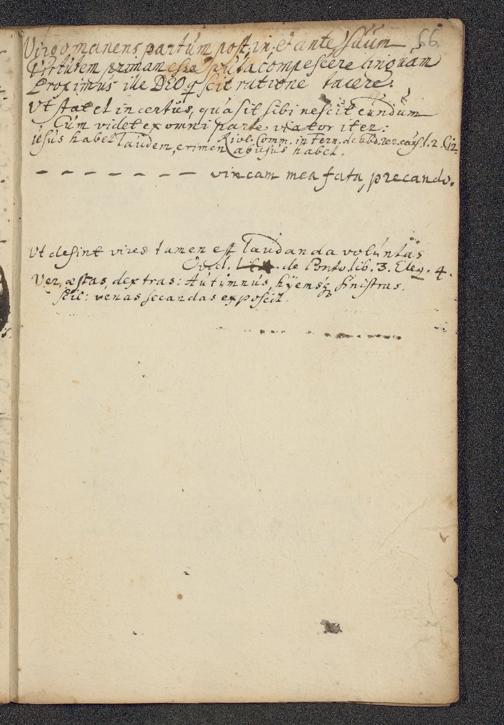 66.
Virgo manens partum post, in, et ante
Virtutem primam esse puta compescere linguam
Proximus ille DEO qui scit ratione tacere.
Ut stat et incertus, qua sit sibi nescit eundum
Cum videt ex omni parte viator iter:
usus habet laudem, crimen abusus habet.
- - - - - - - vincam mea fata precando.
Ut desint vires tamen est laudanda voluntas
Ovid. de Ponto lib. 3. Eleg. 4.
Ver, æstas, dextras: Autumnus, hyemsq; sinistras
sic: venas secandas exposcit.